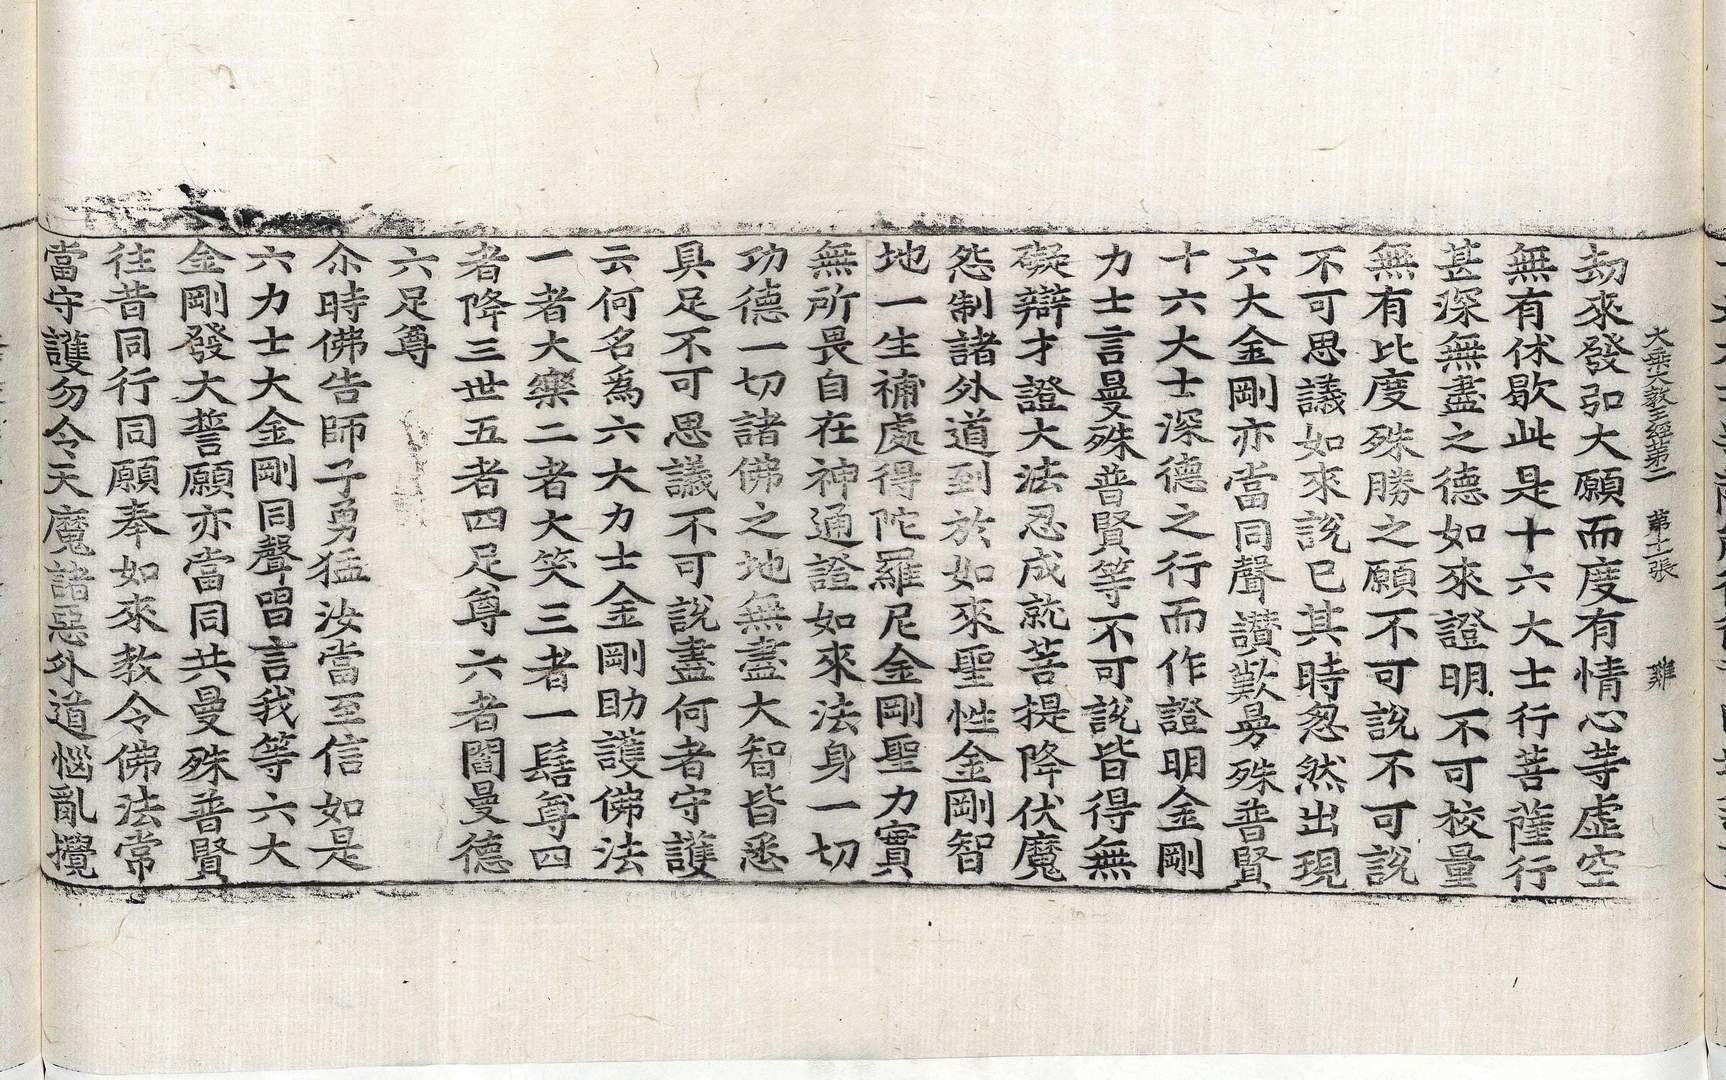 大乘大教王經第二 第十一張 雞
劫來發弘大願而度有情心等虛空
無有休歇此是十六大士行菩薩行
甚深無盡之德如來證明不可挍量
無有比度殊勝之願不可說不可說
不可思議如來說已其時忽然出現
六大金剛亦當同聲讚歎曼殊普賢
十六大士深德之行而作證明金剛
力士言曼殊普賢等不可說皆得無
礙辯才證大法忍成就菩提降伏魔
怨制諸外道到於如來聖性金剛智
地一生補處得陀羅尼金剛聖力實
無所畏自在神通證如來法身一切
功德一切諸佛之地無盡大智皆悉
具足不可思議不可說盡何者守護
云何名爲六大力士金剛助護佛法
一者大樂二者大笑三者一髻尊四
者降三世五者四足尊六者閻曼德
六足尊
尒時佛告師子勇猛汝當至信如是
六力士大金剛同聲唱言我等六大
金剛發大誓願亦當同共曼殊普賢
往昔同行同願奉如來教令佛法常
當守護勿令天魔諸惡外道惱亂攪